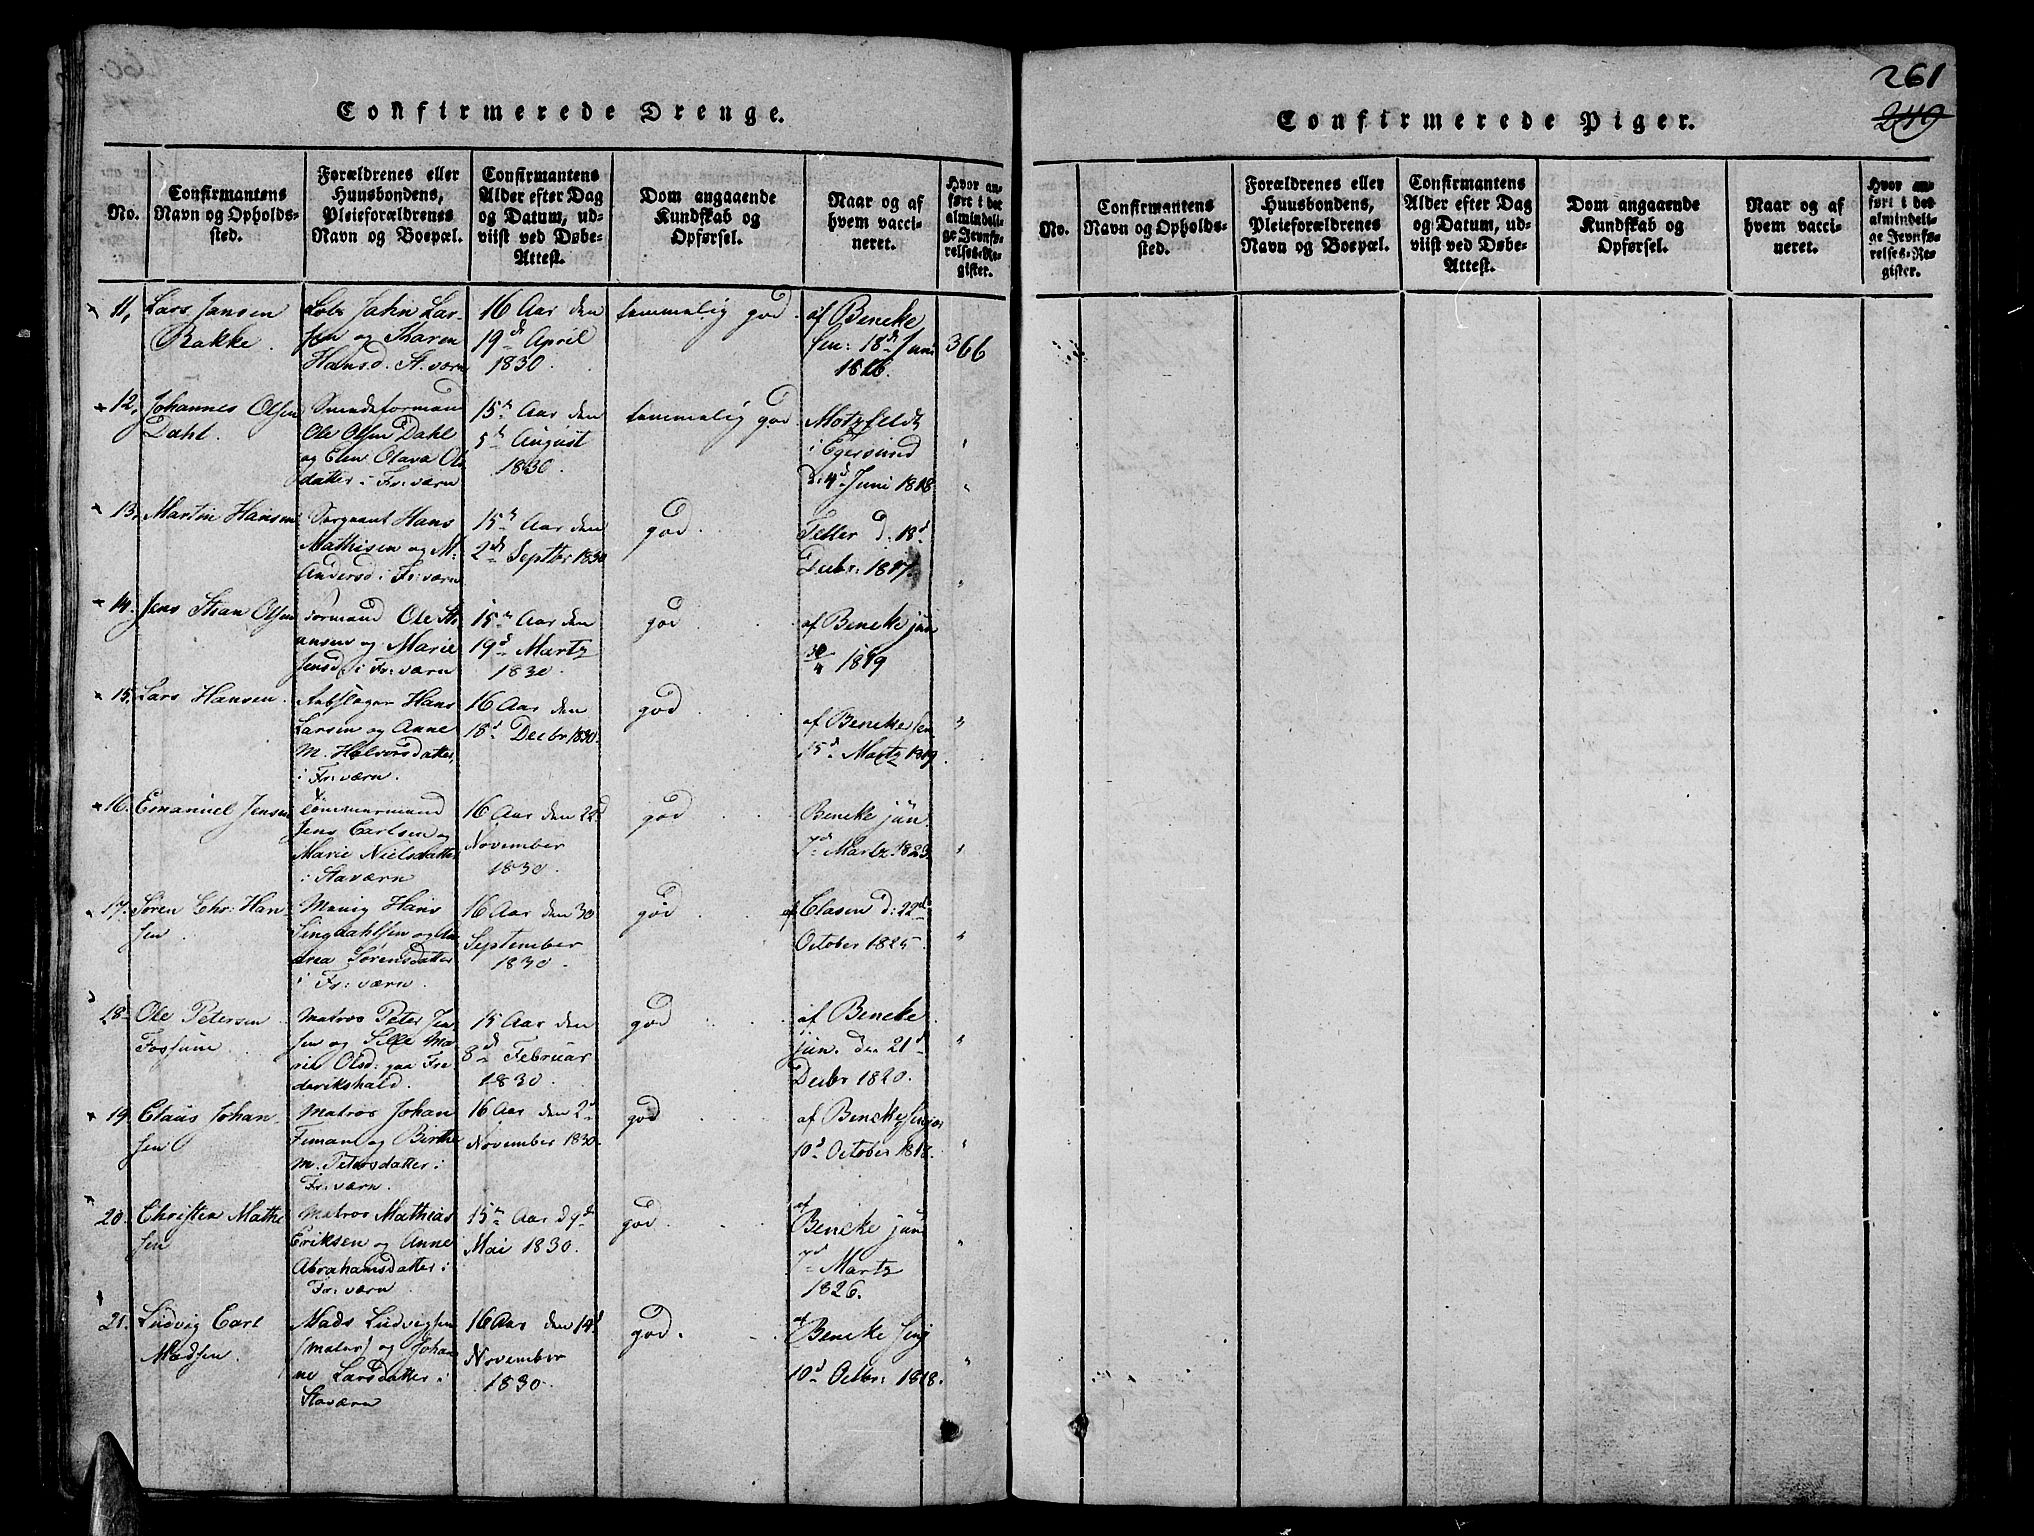 261
249
Confirmerede Drenge.
No.
Confirmantens
Navn og Opholds-
sted.
Forældrenes eller
Huusbondens,
Pleieforældrenes
Navn og Boepæl.
Confirmantens
Alder efter Dag
og Datum, ud-
viist ved Døbe-
Attest.
Dom angaaende
Kundskab og
Opførsel.
Naar og af
hvem vacci-
neret.
Hvor an-
ført i det
almindeli-
ge Jevnfø-
relses-Re-
gister.
11,
Lars Jansen
Bakke.
Lods Jahn Lar-
sen og Maren
Hansd. St.værn
16 Aar den
19de April
1830.
temmelig god.
af Bencke
sen: 18d Juni
1816.
366
12,
Johannes Olsen
Dahl.
Smedeformand
Ole Olsen Dahl
og Elen Olava Ols
datter i Fr:værn
15 Aar den
5te August
1830.
temmelig god
Motzfeldt
i Egersund
d: 4d Juni 1818
13,
Martin Hansen
Sergeant Hans
Mathisen og M:
Andersd i Fr:værn
15 Aar den
2de Septbr 1830
god.
Teller d: 18d
Decbr: 1817.
14.
Jens Olsen
Formand Ole
ansen og Marie
Jensd i Fr:værn
15 Aar den
19d Martz
1830.
god
af Bencke jun
30/4 1819
15,
Lars Hansen.
Hans
Larsen og Anne
M. Halvorsdatter
i Fr:værn.
16 Aar den
18d Decbr 1830.
god
af Bencke sen.
15d Martz 1819.
16.
Emanuel Jensen
Tømmermand
Jens Carlsen og
Marie Nielsdatter
i Staværn
16 Aar den 22d
November
1830.
god
Bencke jun.
7d Martz 1823.
17.
Søren Chr: Han-
sen
Hans
Lingdahlsen og An
drea Sørensdatter
i Fr: værn.
16 Aar den 30
September
1830.
god
af Clasen d: 22d
October 1825.
18
Ole Petersen
Fossum
Matros Peter Jen
sen og Silke Ma
rie Olsd: paa Fre
derikshald.
15 Aar den
8de Februar
1830.
god
af Bencke
jun. den 21d
Decbr 1820.
19.
Claus Johan-
sen
Matros Johan
Timan og Birthe
M. Petersdatter i
Fr:værn.
16 Aar den 2d
November 1830.
god
af Bencke
10d October 1818.
20.
Christen Mathi
sen
Matros Mathias
Eriksen og Anne
Abrahamsdatter i
Fr:værn
15 Aar d 9de
Mai 1830.
god.
af
Bencke jun
7d Martz
1826.
21.
Ludvig Carl
Madsen.
Mads Ludvigsen
(maler) og Johan
ne Larsdatter i
Staværn
16 Aar den 14d
November
1830.
god.
af
Bencke
10d Octbr: 1818.
Confirmerede Piger.
No.
Confirmantens
Navn og Opholds-
sted.
Forældrenes eller
Huusbondens,
Pleieforældrenes
Navn og Boepæl.
Confirmantens
Alder efter Dag
og Datum, ud-
viist ved Døbe-
Attest.
Dom angaaende
Kundskab og
Opførsel.
Naar og af
hvem vacci-
neret.
Hvor an-
ført i det
almindeli-
ge Jevnfø-
relses-Re-
gister.